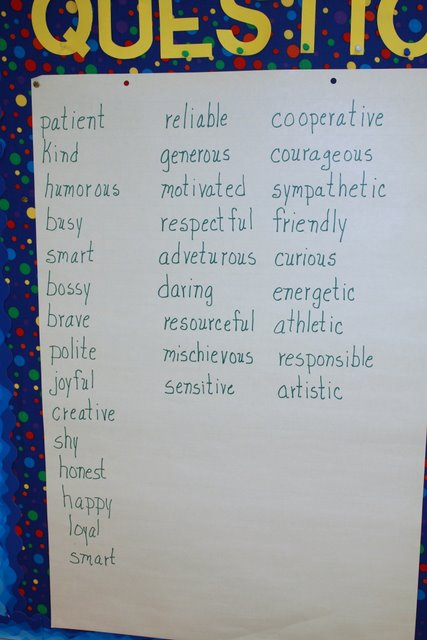 QUESTIO
patient
kind
humorous
busy
smart
bossy
brave
polite
joyful
creative
shy
honest
happy
loyal
smart
reliable
generous
motivated
respectful
adveturous
daring
resourceful
mischievous
sensitive
cooperative
courageous
sympathetic
friendly
curious
energetic
athletic
responsible
artistic